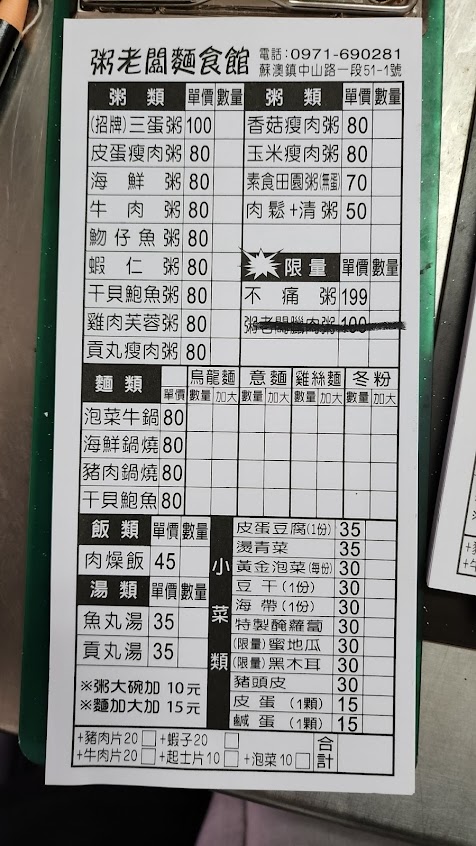 粥老闆麵食館 電話:0971-690281
蘇澳鎮中山路一段51-1號
粥類 單價 數量 粥類 單價 數量
(招牌)三蛋粥 100 香菇瘦肉粥 80
皮蛋瘦肉粥 80 玉米瘦肉粥 80
海鮮粥 80 素食田園粥(無蛋) 70
牛肉粥 80 肉鬆+清粥 50
魩仔魚粥 80
蝦仁粥 80 限量 單價 數量
干貝鮑魚粥 80 不痛粥 199
雞肉芙蓉粥 80 粥老闆臘肉粥 100
貢丸瘦肉粥 80
麵類 單價 烏龍麵 意麵 雞絲麵 冬粉
數量 加大 數量 加大 數量 加大 數量 加大
泡菜牛鍋 80
海鮮鍋燒 80
豬肉鍋燒 80
干貝鮑魚 80
飯類 單價 數量
肉燥飯 45
湯類 單價 數量
魚丸湯 35
貢丸湯 35
※粥大碗加 10元
※麵加大加 15元
小菜類
皮蛋豆腐(1份) 35
燙青菜 35
黃金泡菜(每份) 30
豆干(1份) 30
海帶(1份) 30
特製醃蘿蔔 30
(限量)蜜地瓜 30
(限量)黑木耳 30
豬頭皮 30
皮蛋(1顆) 15
鹹蛋(1顆) 15
+豬肉片20 +蝦子20 合計
+牛肉片20 +起士片10 +泡菜10